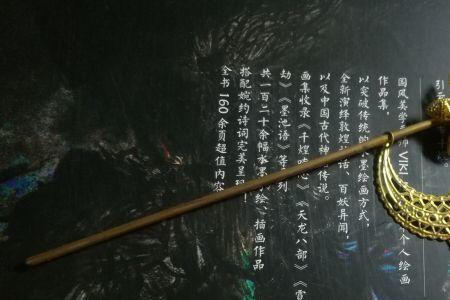 引
国风美学师VIKI个人绘画
作品集,
以突破传统的水墨绘画方式,
全新演绎敦煌神话、百妖异闻,
以及中国古代神话传说。
画集收录《千煌》《天龙八部》《雪
劫》《墨池语》等系列
共一百二十余幅水墨绘、插画作品
搭配婉约诗词完美呈现!
全书160余页超值内容